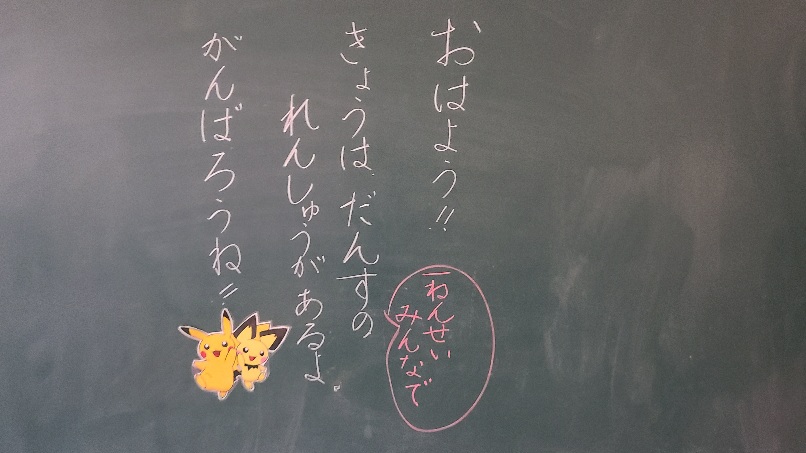 おはよう!!
きょうは、だんすの
れんしゅうがあるよ。
がんばろうね!!
一ねんせい
みんなで